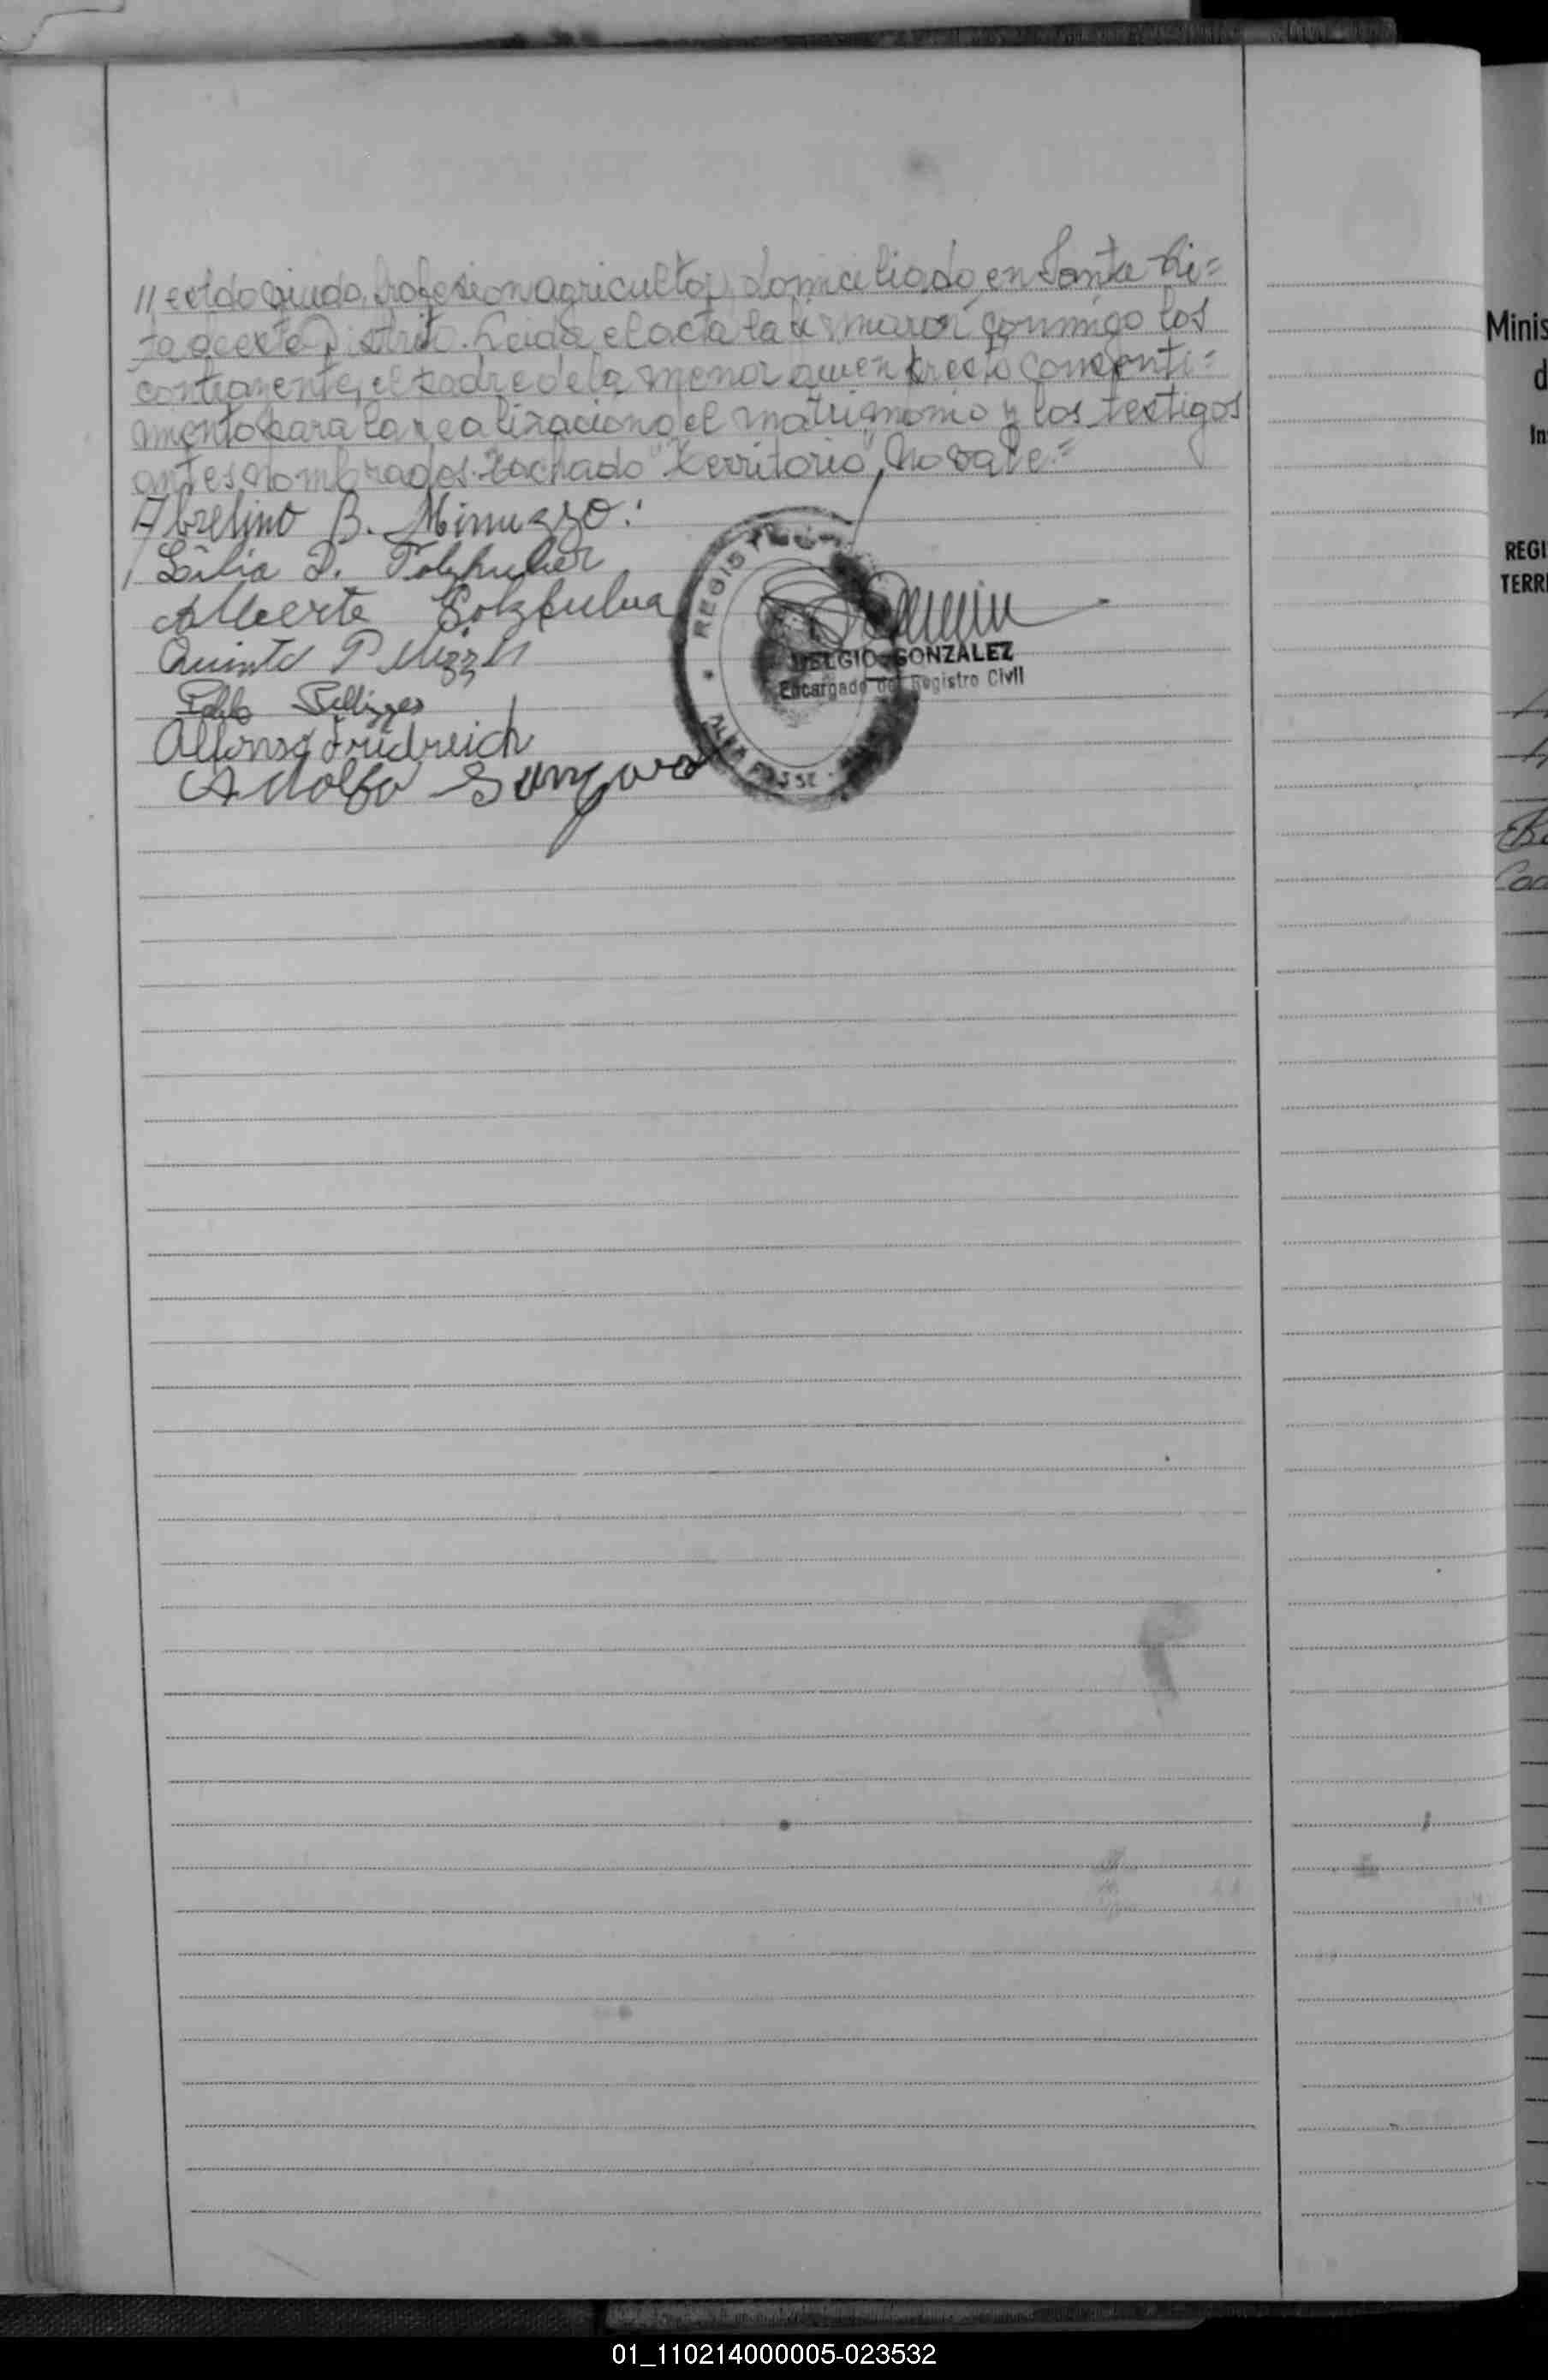 // estdo viudo, profesion agricultor, domiciliado en Santa Ri=
ta de este Distrito. Leida el acta la firmaron conmigo los
contrayentes, el padre de la menor quien presto consenti=
miento para la realizacion del matrimonio y los testigos
antes nombrados. Tachado "Territorio" No vale.=
Abrelino B. Minuzzo.
Lilia D. Folzhuber
Alberto
Quinto Pellizz
Pablo Pellizzer
Alfonso Fridreich
Adolfo
REGISTRO
ALBA POSSE
GONZALEZ
Encargado del Registro Civil
Minis
d
In
REGI
TERRI
01_110214000005-023532